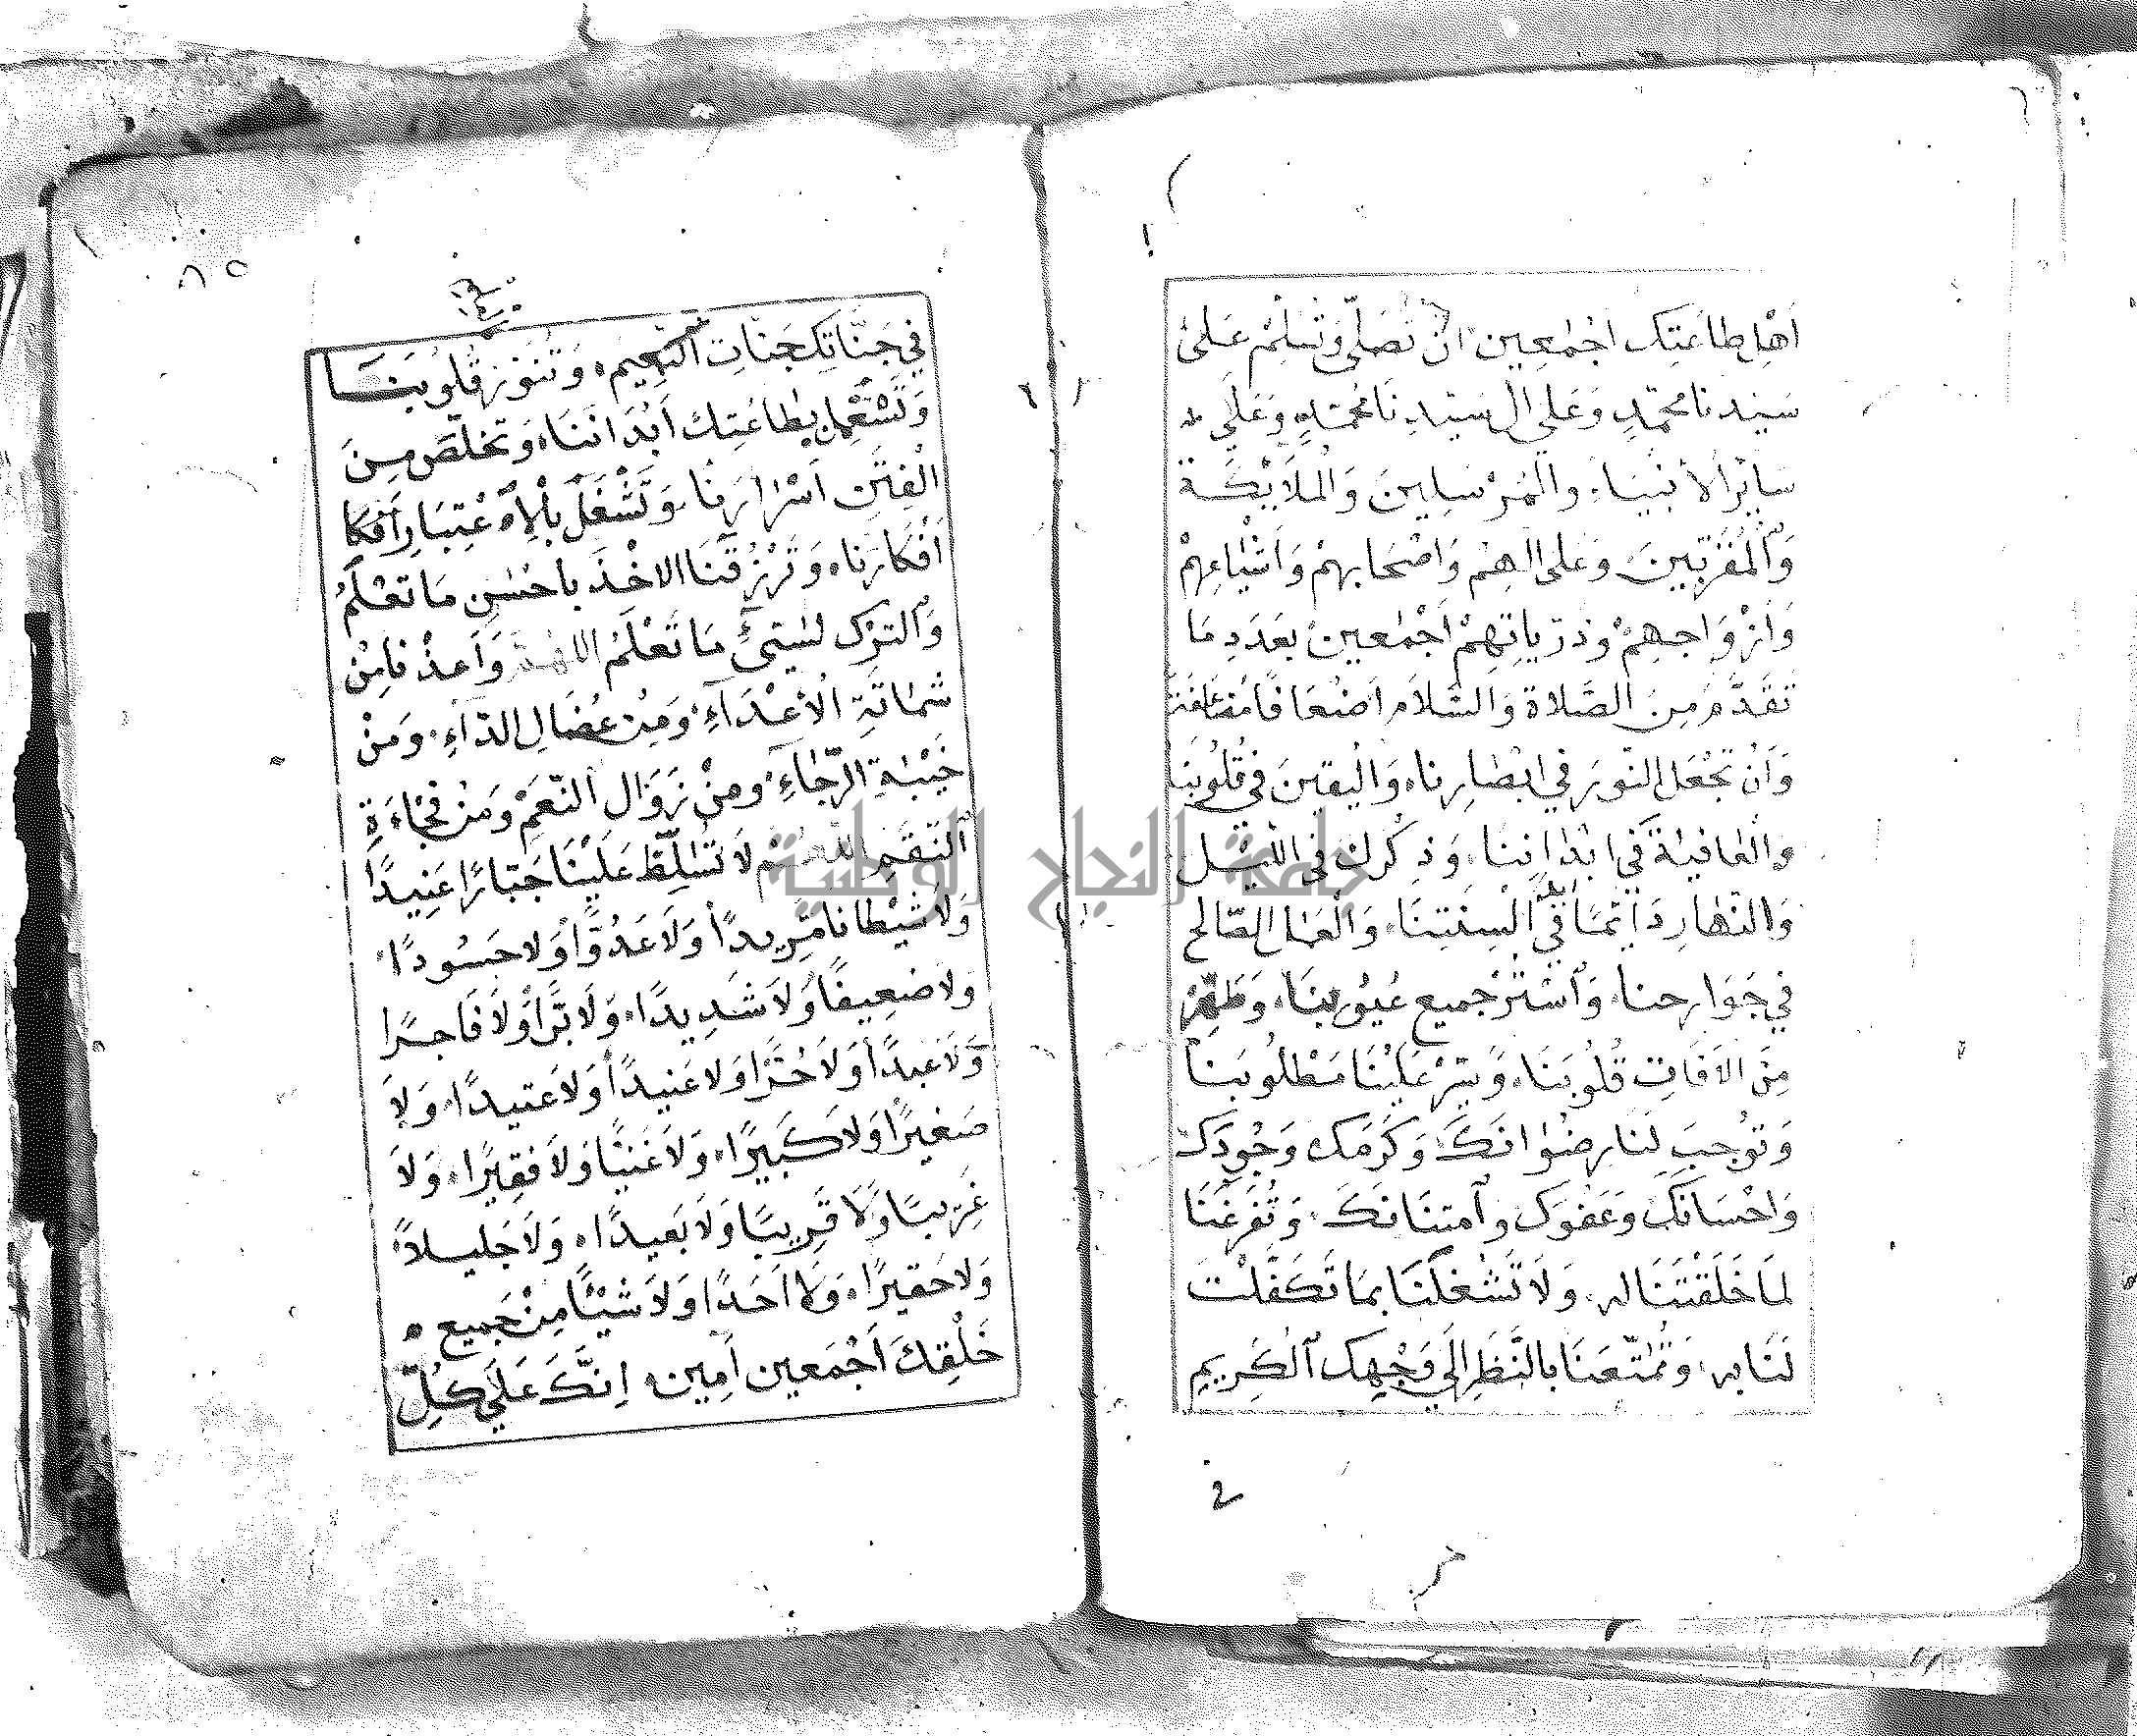 اَهْلِ طَاعَتِكَ اَجْمَعِينَ اَنْ تُصَلِّيَ وَتُسَلِّمَ عَلىٰ
سَيِّدِنَا مُحَمَّدٍ وَعَلى اٰلِ سَيِّدِنَا مُحَمَّدٍ وَعَلى
سَائِرِ الأَنْبِيَاءِ وَالْمُرْسَلِينَ وَالْمَلَائِكَةِ
وَالْمُقَرَّبِينَ وَعَلى اٰلِهِمْ وَاَصْحَابِهِمْ وَاَشْيَاعِهِمْ
وَاَزْوَاجِهِمْ وَذُرِّيَاتِهِمْ اَجْمَعِينَ بِعَدَدِ مَا
تَقَدَّمَ مِنَ الصَّلَاةِ وَالسَّلَامِ اَضْعَافًا مُضَاعَفَةً
وَاَنْ تَجْعَلَ النُّورَ فِي اَبْصَارِنَا، وَالْيَقِينَ فِي قُلُوبِنَا
وَالْعَافِيَةَ فِي اَبْدَانِنَا، وَذِكْرَكَ فِي اللَّيْلِ
وَالنَّهَارِ دَائِمًا فِي اَلْسِنَتِنَا، وَالْعَمَلَ الصَّالِحَ
فِي جَوَارِحِنَا، وَاسْتُرْ جَمِيعَ عُيُوبِنَا، وَطَهِّرْ
مِنَ الآفَاتِ قُلُوبَنَا، وَيَسِّرْ عَلَيْنَا مَطْلُوبَنَا
وَتُوجِبَ لَنَا رِضْوَانَكَ وَكَرَمَكَ وَجُودَكَ
وَاِحْسَانَكَ وَعَفْوَكَ وَامْتِنَانَكَ، وَتُفَرِّغَنَا
لِمَا خَلَقْتَنَا لَهُ، وَلَا تَشْغَلْنَا بِمَا تَكَفَّلْتَ
لَنَا بِهِ، وَتُمَتِّعَنَا بِالنَّظَرِ اِلَى وَجْهِكَ الْكَرِيمِ
٨٥
فِي جَنَّاتِكَ جَنَّاتِ النَّعِيمِ، وَتُنَوِّرَ قُلُوبَنَا
وَتَسْتَعْمِلَ بِطَاعَتِكَ اَبْدَانَنَا، وَتُخَلِّصَ مِنَ
الْفِتَنِ اَسْرَارَنَا، وَتَشْغَلَ بِالِاعْتِبَارِ اَفْكَا
اَفْكَارَنَا، وَتَرْزُقَنَا الاَخْذَ بِاَحْسَنِ مَا تَعْلَمُ
وَالتَّرْكَ لِسَيِّئِ مَا تَعْلَمُ اللَّهُمَّ وَاَعِذْنَا مِنْ
شَمَاتَةِ الْاَعْدَاءِ، وَمِنْ عُضَالِ الدَّاءِ، وَمِنْ
خَيْبَةِ الرَّجَاءِ، وَمِنْ زَوَالِ النِّعَمِ وَمِنْ فُجَاءَةِ
النِّقَمِ اللَّهُمَّ لَا تُسَلِّطْ عَلَيْنَا جَبَّارًا عَنِيدًا
وَلَا شَيْطَانًا مَرِيدًا وَلَا عَدُوًّا وَلَا حَسُودًا
وَلَا ضَعِيفًا وَلَا شَدِيدًا، وَلَا بَرًّا وَلَا فَاجِرًا
وَلَا عَبْدًا وَلَا حُرًّا وَلَا عَنِيدًا وَلَا عَتِيدًا، وَلَا
صَغِيرًا وَلَا كَبِيرًا، وَلَا غَنِيًّا وَلَا فَقِيرًا، وَلَا
غَرِيبًا وَلَا قَرِيبًا وَلَا بَعِيدًا، وَلَا جَلِيلًا
وَلَا حَقِيرًا، وَلَا اَحَدًا وَلَا شَيْئًا مِنْ جَمِيعِ
خَلْقِكَ اَجْمَعِينَ اٰمِينَ، اِنَّكَ عَلَى كُلِّ
جامعة النجاح الوطنية